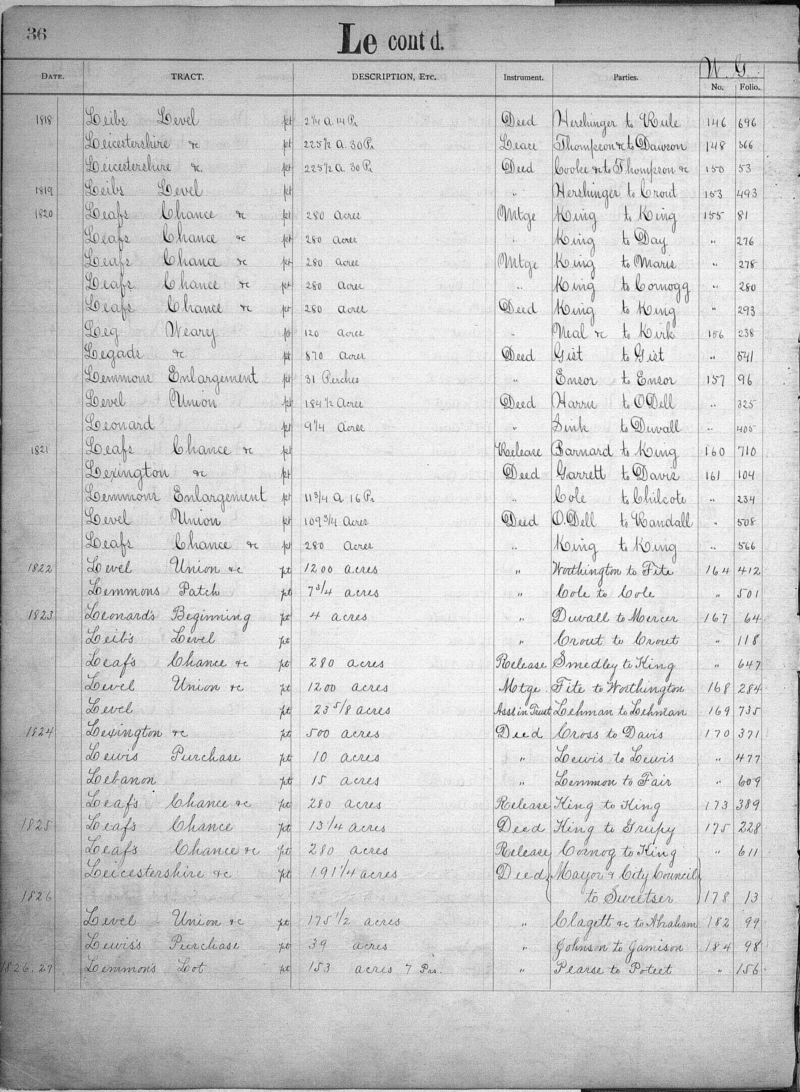 36
Le cont d.
W. G.
DATE. TRACT. DESCRIPTION, ETC. Instrument. Parties. No. Folio.
1818 Leibs Level pt 2¼ a 14 Ps Deed Hershinger to Rule 146 696
Leicestershire &c pt 225½ a. 30 Ps Lease Thompson &c to Dawson 148 366
Leicestershire &c pt 225½ a 30 Ps Deed Cooke &c to Thompson &c 150 53
1819 Leibs Level pt " Hershinger to Crout 153 493
1820 Leafs Chance &c pt 280 acres Mtge King to King 155 81
Leafs Chance &c pt 280 acres " King to Day " 276
Leafs Chance &c pt 280 acres Mtge King to Maris " 278
Leafs Chance &c pt 280 acres " King to Cornogg " 280
Leafs Chance &c pt 280 acres Deed King to King " 293
Leg Weary pt 120 acres " Neal &c to Kirk 156 238
Legads &c pt 870 acres Deed Gist to Gist " 541
Lemmons Enlargement pt 31 Perches " Ensor to Ensor 157 96
Level Union pt 184½ acres Deed Harris to O'Dell " 325
Leonard pt 9¼ acres " Sink to Duvall " 405
1821 Leafs Chance &c pt Release Barnard to King 160 710
Lexington &c pt Deed Garrett to Davis 161 104
Lemmons Enlargement pt 11¾ a 16 Ps " Cole to Chilcote " 234
Level Union pt 109¾ acres Deed O.Dell to Randall " 508
Leafs Chance &c pt 280 acres " King to King " 566
1822 Level Union &c pt 1200 acres " Worthington to Fite 164 412
Lemmons Patch pt 7¾ acres " Cole to Cole " 501
1823 Leonard's Beginning pt 4 acres " Duvall to Mercer 167 64
Leib's Level pt " Crout to Crout " 118
Leafs Chance &c pt 280 acres Release Smedley to King " 647
Level Union &c pt 1200 acres Mtge Fite to Worthington 168 284
Level pt 23 5/8 acres Asst in Trust Lehman to Lehman 169 735
1824 Lexington &c pt 500 acres Deed Cross to Davis 170 371
Lewis Purchase pt 10 acres " Lewis to Lewis " 477
Lebanon pt 15 acres " Lemmon to Fair " 609
Leafs Chance &c pt 280 acres Release King to King 173 389
1825 Leafs Chance pt 13¼ acres Deed King to 175 228
Leafs Chance &c pt 280 acres Release Cornog to King " 611
Leicestershire &c pt 191¼ acres Deed Mayor & City Council
1826 to Sweetser 178 13
Level Union &c pt 175½ acres " Clagett &c to Abraham 182 99
Lewis's Purchase pt 39 acres " Johnson to Jamison 184 98
1826.27 Lemmons Lot pt 153 acres 7 Prs. " Pearse to Poteet " 156